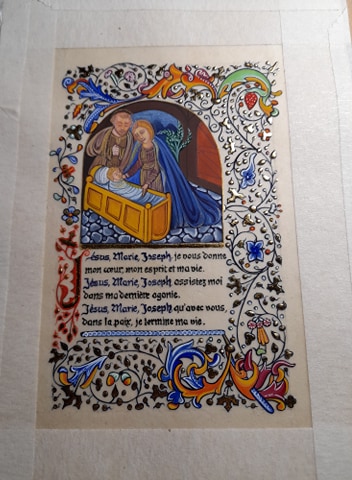 Jésus, Marie, Joseph, je vous donne
mon cœur, mon esprit et ma vie.
Jésus, Marie, Joseph assistez moi
dans ma dernière agonie.
Jésus, Marie, Joseph qu'avec vous,
dans la paix, je termine ma vie.